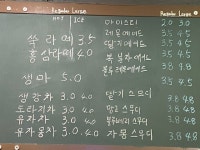 Regular Large
HOT ICE
쑥 라떼 3.5
홍삼라떼 4.0
생마 5.0
생강차 3.0 4.0
도라지차 3.0 4.0
유자차 3.0 4.0
유자몽차 3.0 4.0
Regular Large
아이스티 2.0 3.0
레몬에이드 3.5 4.5
딸기에이드 3.5 4.5
복분자에이드 3.5 4.5
블루레몬에이드 3.5 4.5
딸기 스무디 3.8 4.8
망고 스무디 3.8 4.8
블루베리 스무디 3.8 4.8
자몽 스무디 3.8 4.8